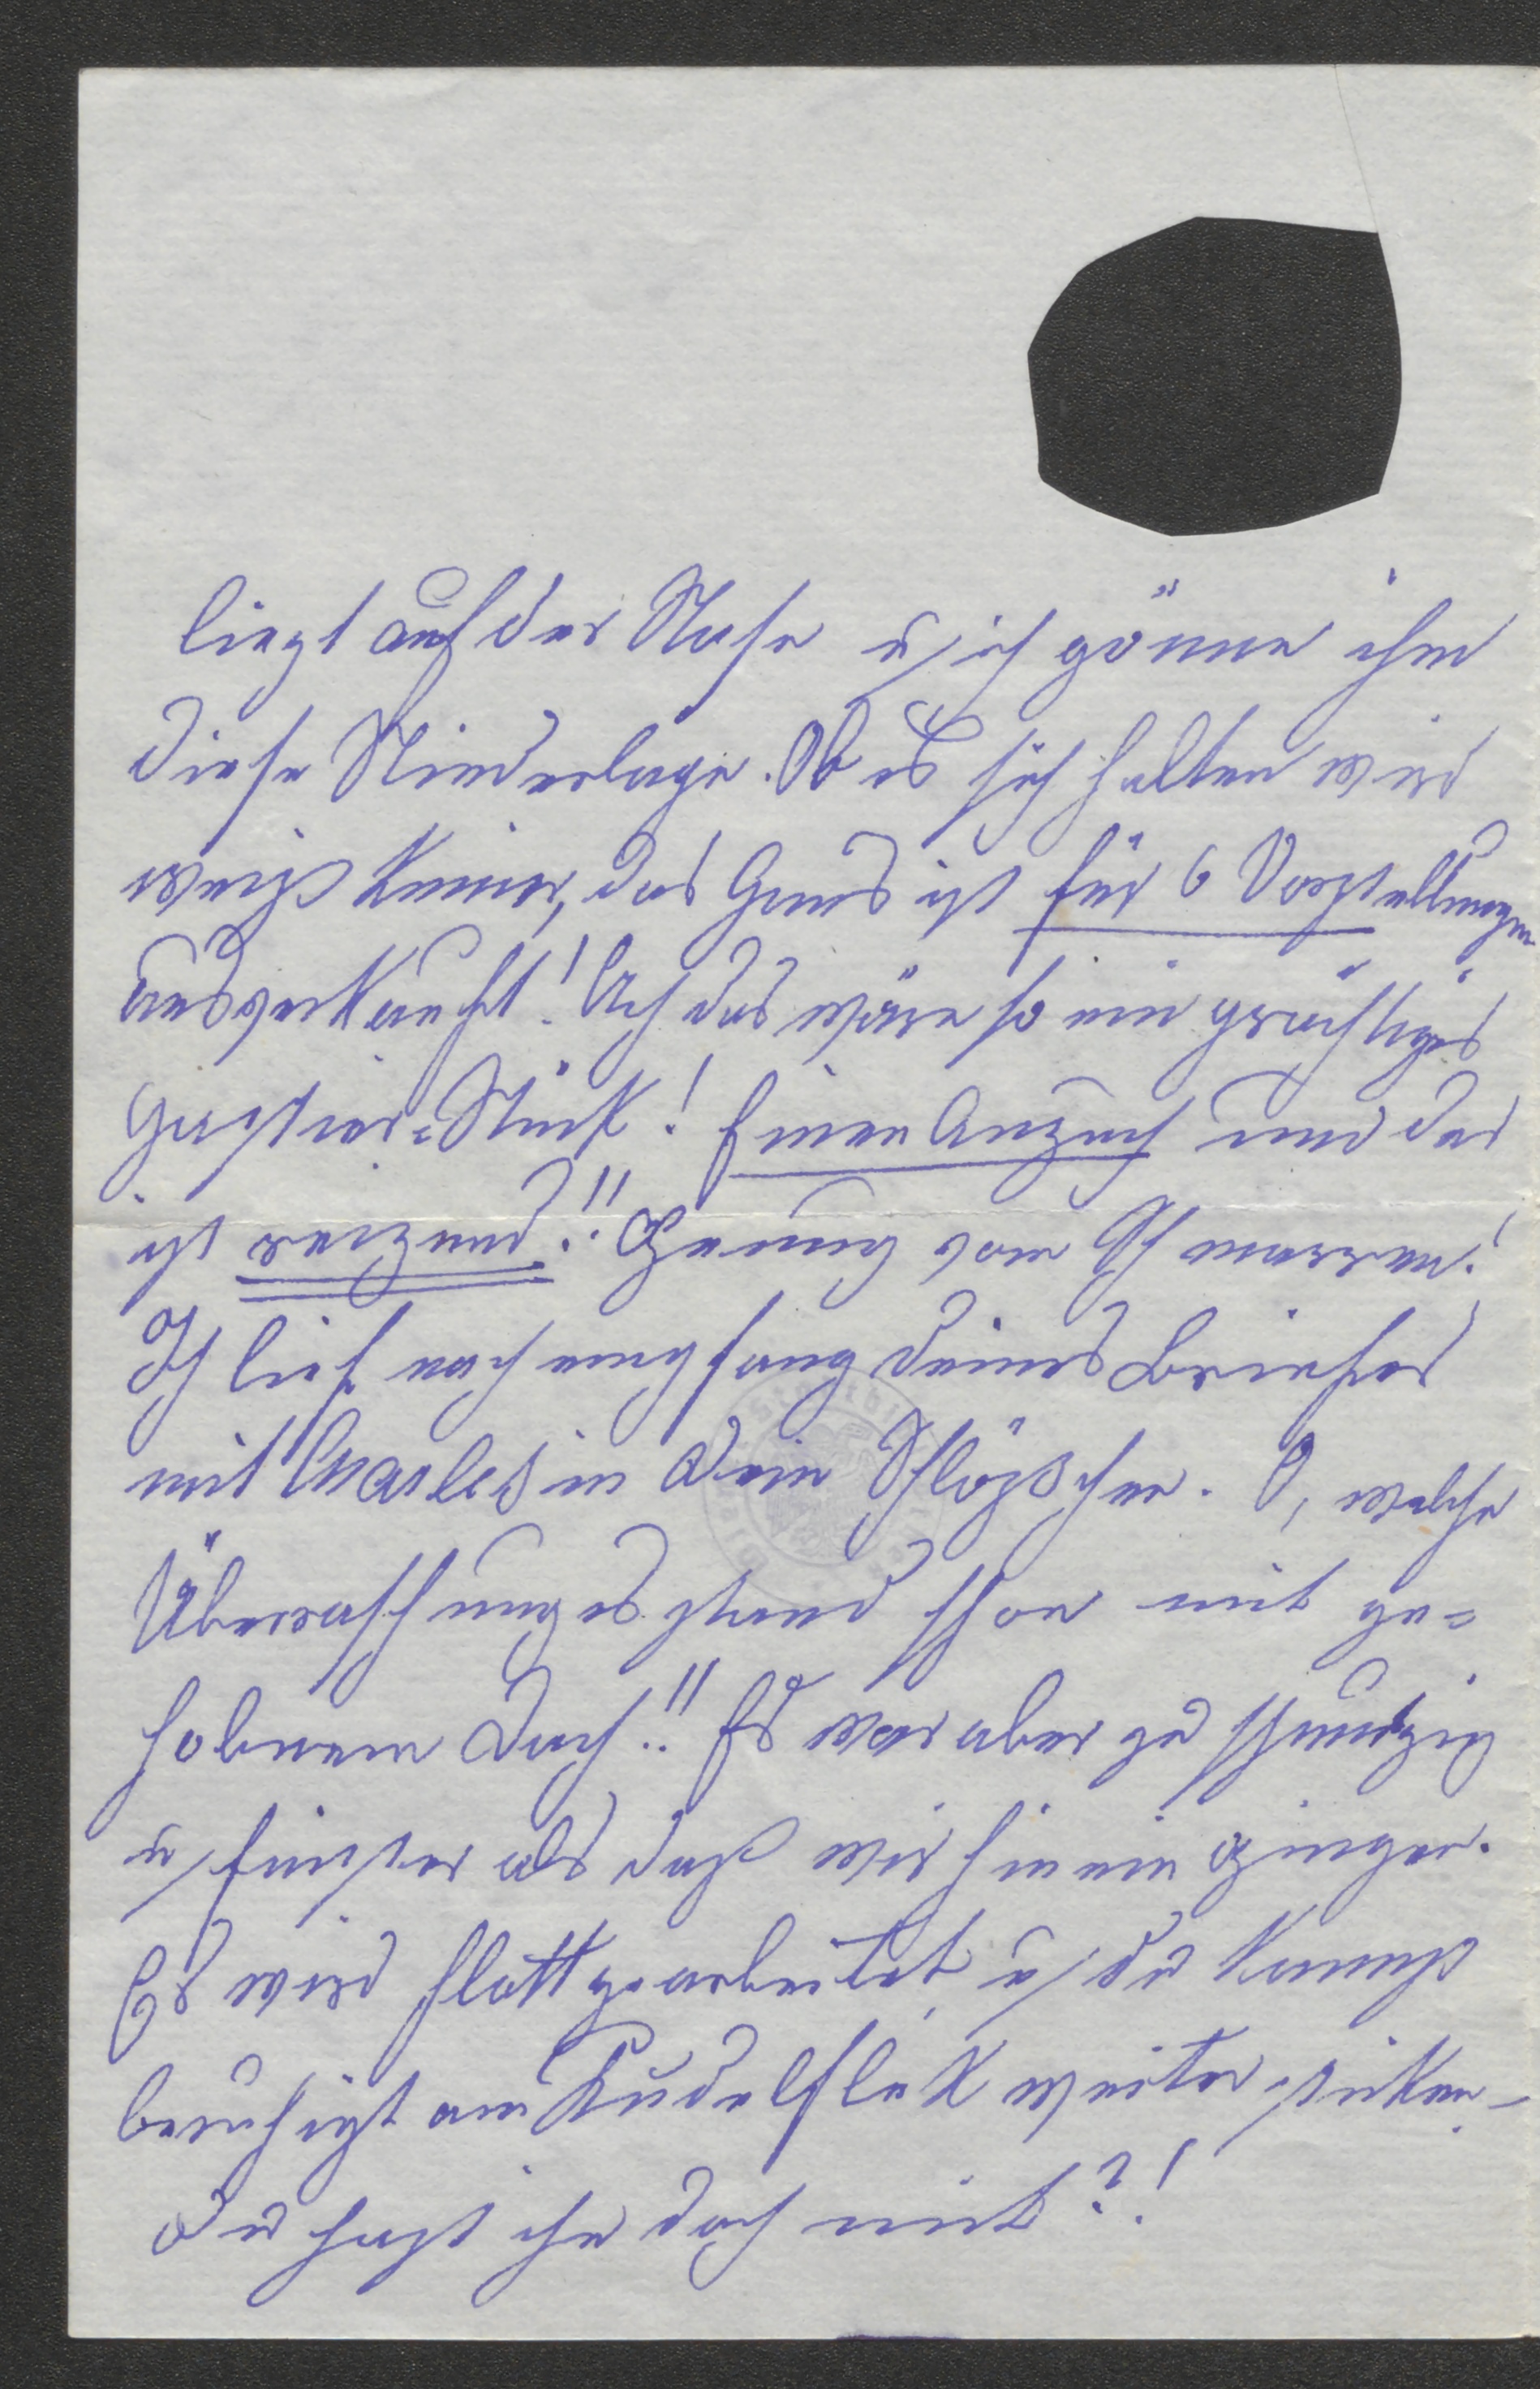 liegt auf der Nase u. ich gönne ihm
diese Niederlage. Ob es sich halten wird
weiß Keiner, das Haus ist für 6 Vorstellungen
ausverkauft! Ach das wäre so ein prächtiges
Gastier-Stück! Einen Anzuch und der
ist reizend!! Genug vom Schmarren!
Ich lief nach empfang deines Briefes
mit Charles in Dein Schlößchen. O, welche
Überraschung es stand schon mit ge-
hobenem Dach!! Es war aber zu schmutzig
u. finster als daß wir hinein gingen.
Es wird flott gearbeitet u. du kannst
beruhigt am Kudelflek weiter sticken –
Du hast ihn doch mit?!